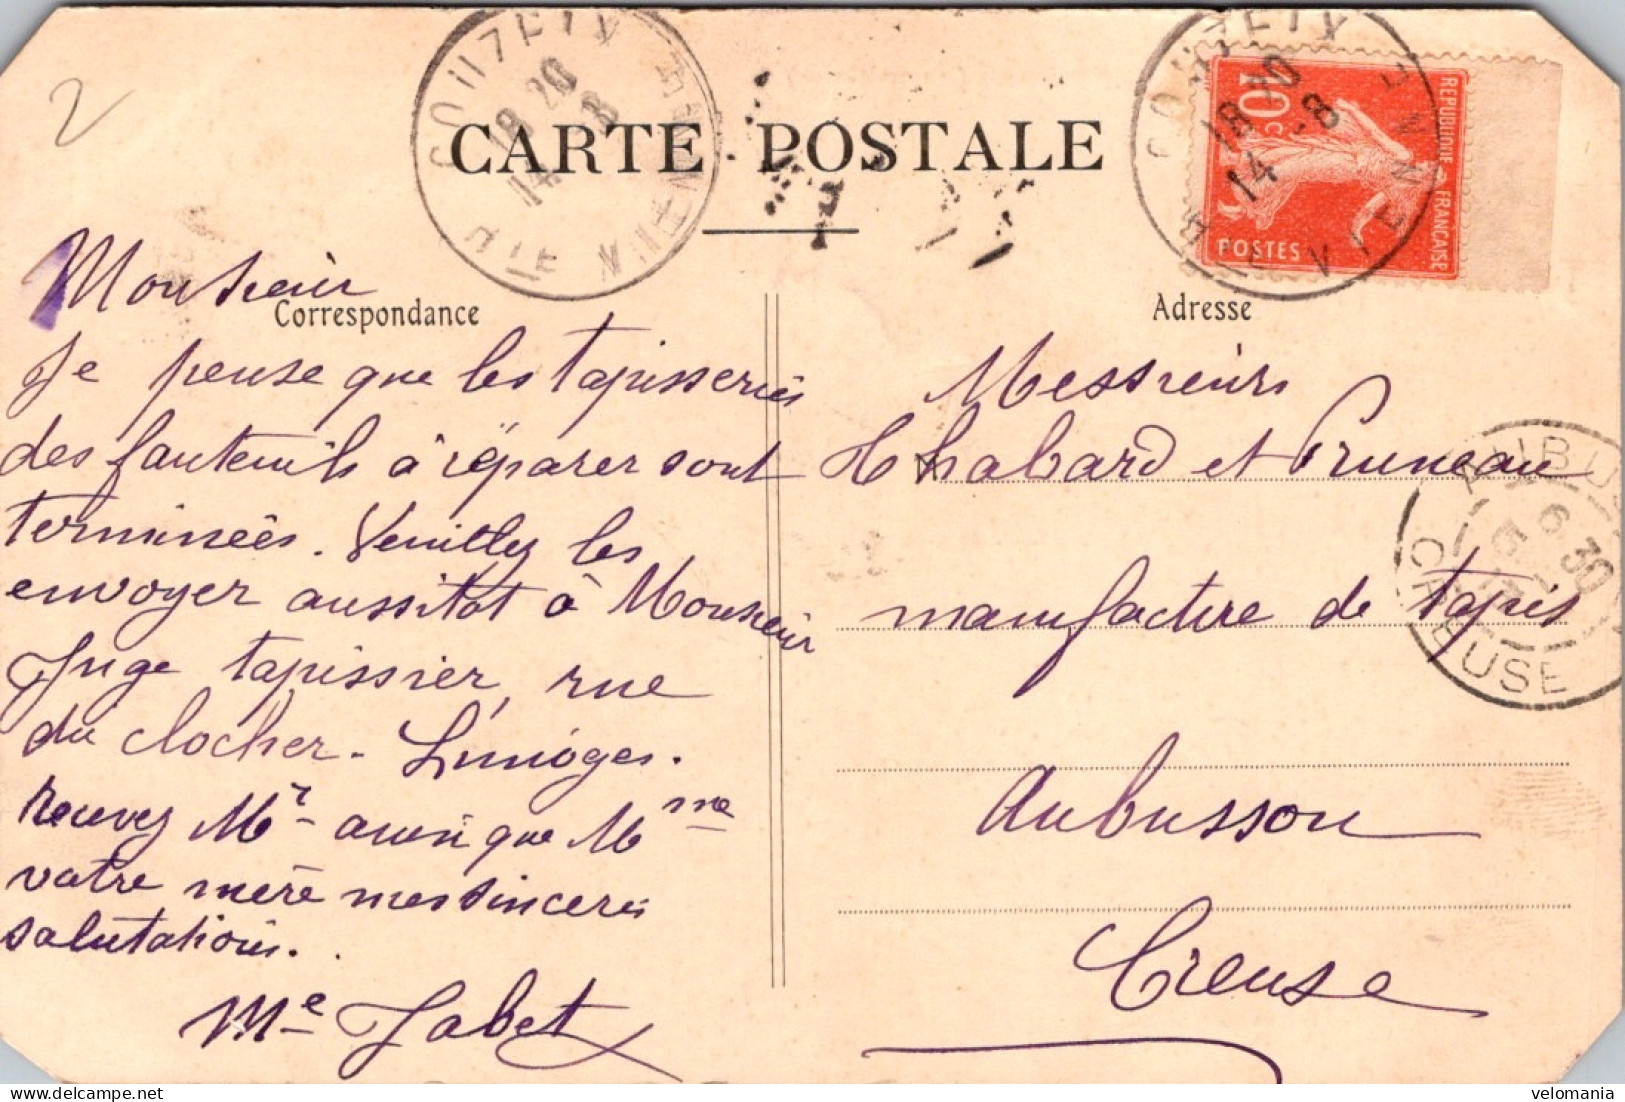 2
COUZEIX
18 20
14 -8
HTE VIENNE
CARTE POSTALE
COUZEIX
18 20
14 -8
VIENNE
REPUBLIQUE FRANCAISE
10 c
POSTES
Correspondance
Adresse
Monsieur
Je pense que les tapisseries
des fauteuils à réparer sont
terminées. Veuillez les
envoyer aussitôt à Monsieur
Juge tapissier, rue
du clocher - Limoges.
Recevez Mr ainsi que Mme
votre mère mes sincères
salutations.
Me Jabet
Messieurs
Chabard et Pruneau
manufacture de tapis
Aubusson
Creuse
AUBUS
6 30
CREUSE
delcampe.net
velomania